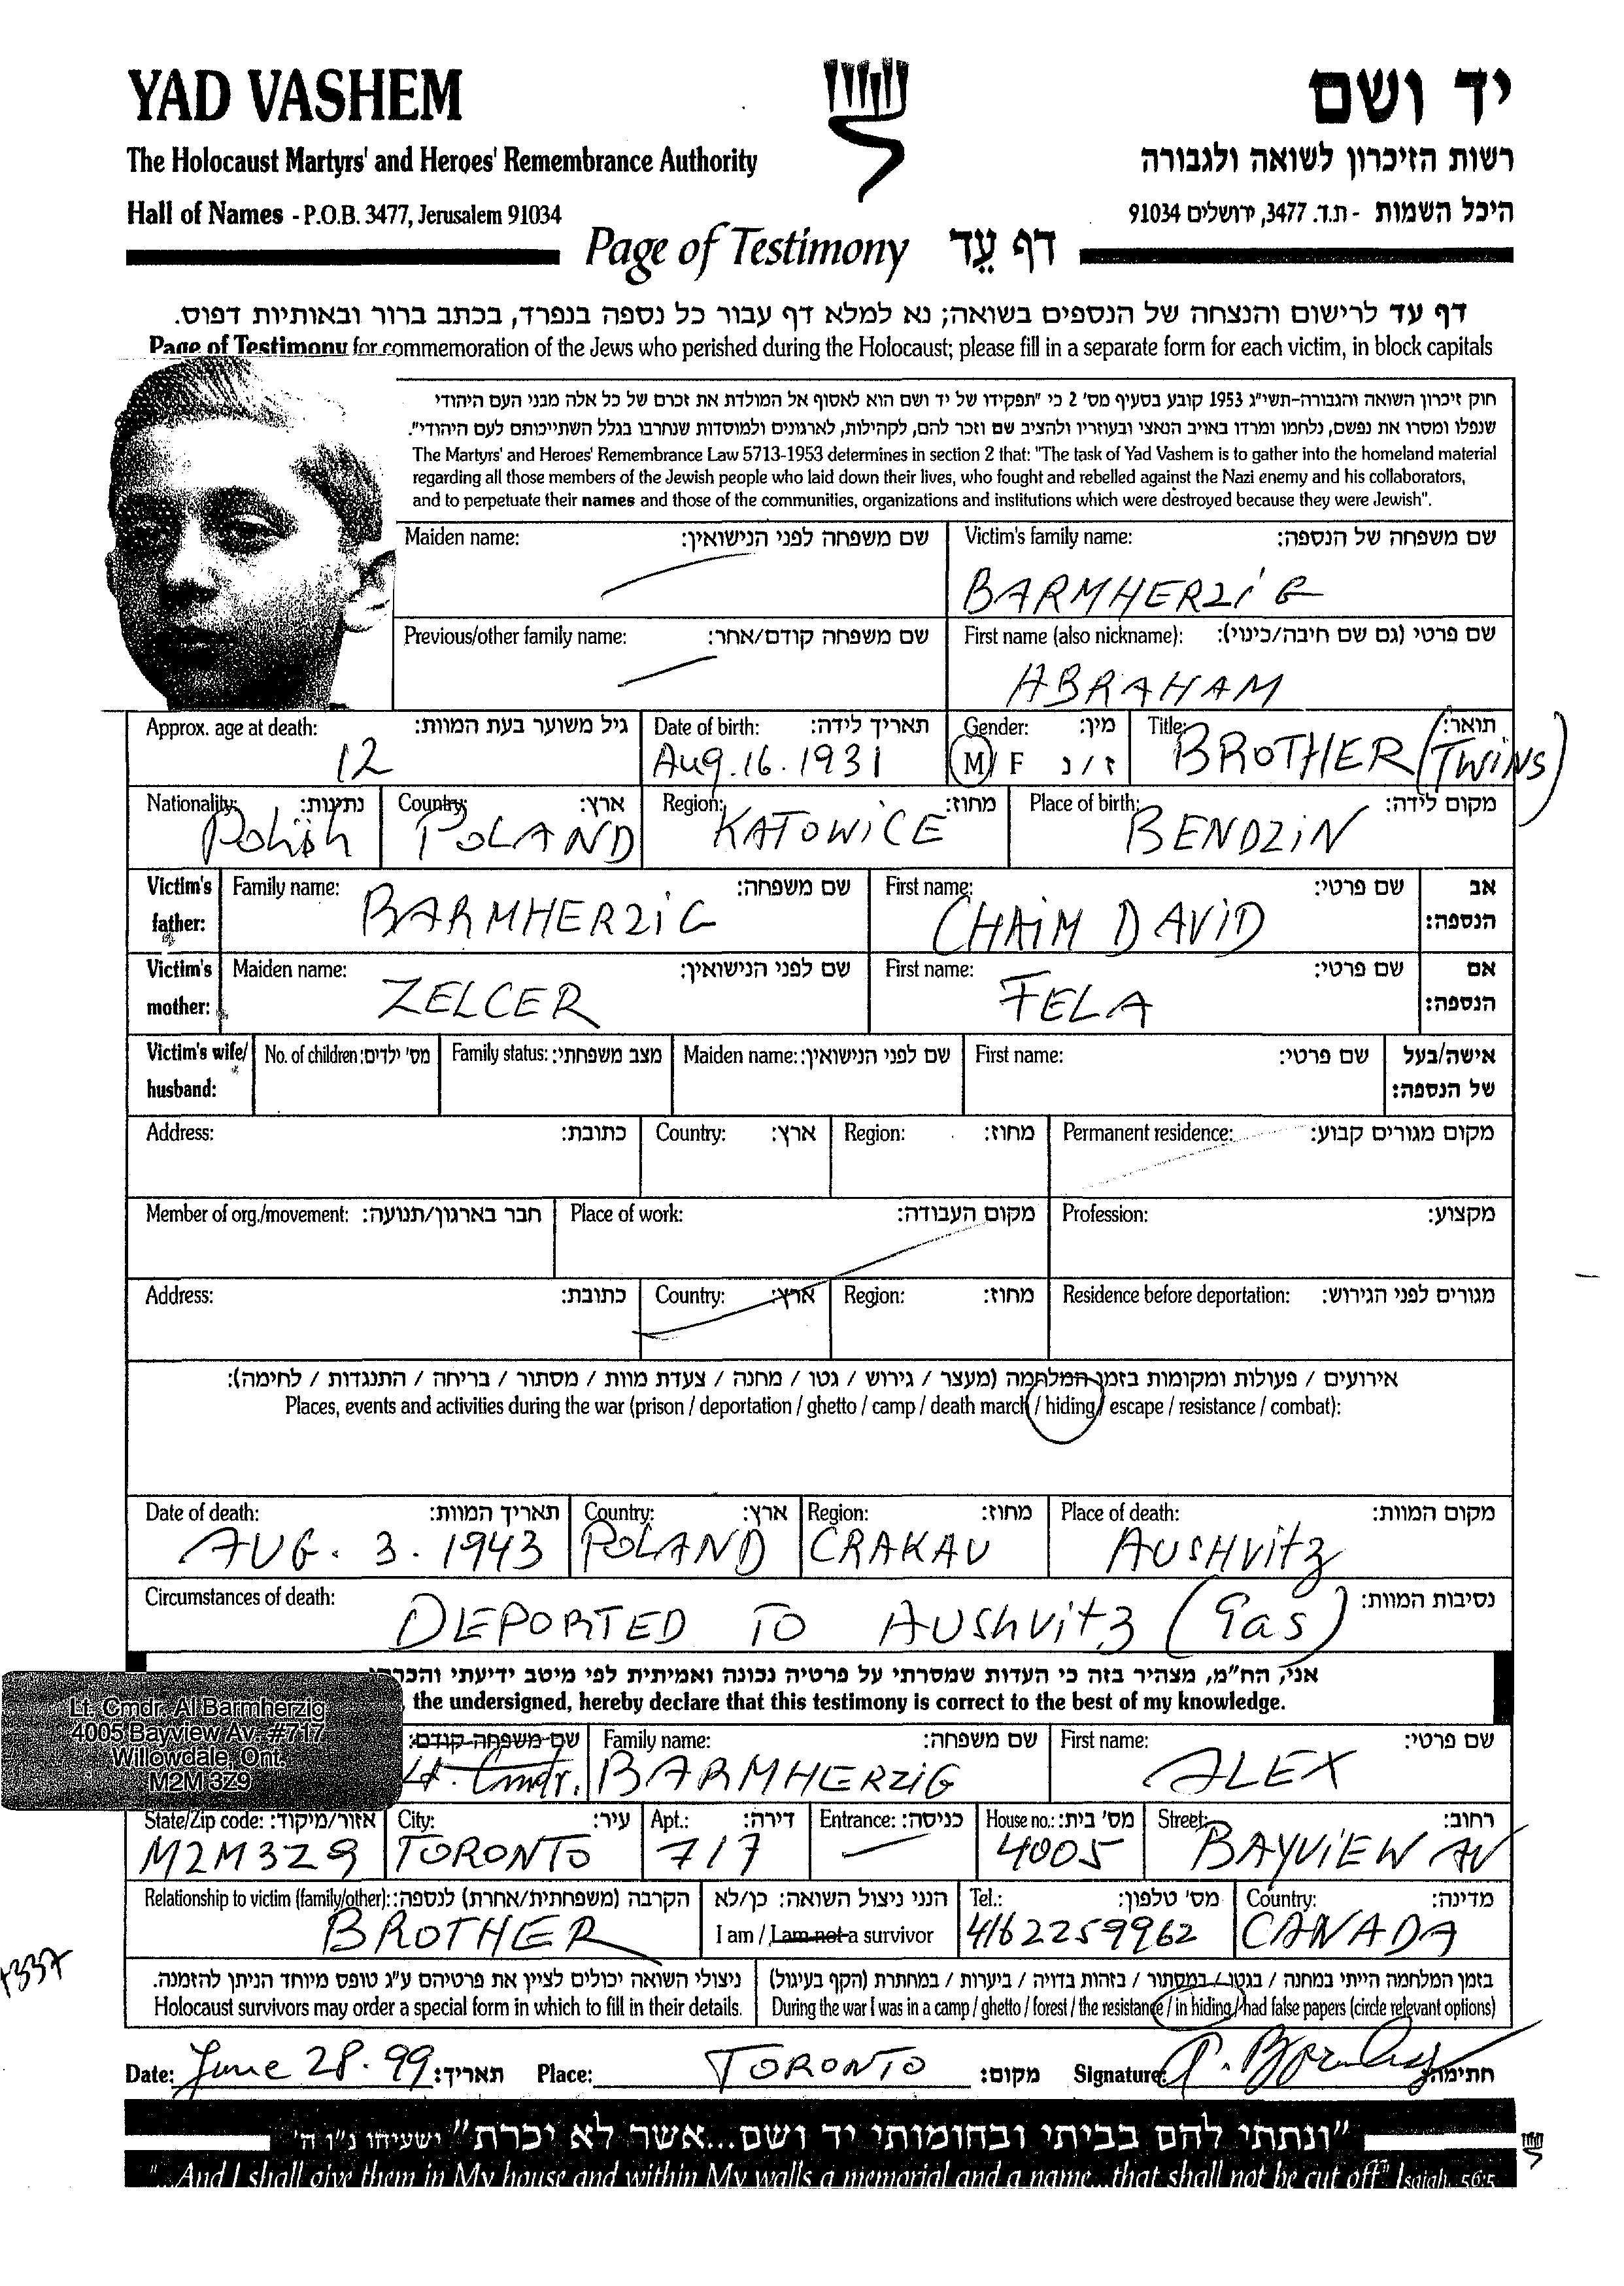 YAD VASHEM
יד ושם
The Holocaust Martyrs' and Heroes' Remembrance Authority
רשות הזיכרון לשואה ולגבורה
Hall of Names - P.O.B. 3477, Jerusalem 91034
היכל השמות - ת.ד. 3477, ירושלים 91034
Page of Testimony דף עֵד
דף עד לרישום והנצחה של הנספים בשואה; נא למלא דף עבור כל נספה בנפרד, בכתב ברור ובאותיות דפוס.
Page of Testimony for commemoration of the Jews who perished during the Holocaust; please fill in a separate form for each victim, in block capitals
חוק זיכרון השואה והגבורה-תשי"ג 1953 קובע בסעיף מס' 2 כי "תפקידו של יד ושם הוא לאסוף אל המולדת את זכרם של כל אלה מבני העם היהודי
שנפלו ומסרו את נפשם, נלחמו ומרדו באויב הנאצי ובעוזריו ולהציב שם וזכר להם, לקהילות, לארגונים ולמוסדות שנחרבו בגלל השתייכותם לעם היהודי".
The Martyrs' and Heroes' Remembrance Law 5713-1953 determines in section 2 that: "The task of Yad Vashem is to gather into the homeland material
regarding all those members of the Jewish people who laid down their lives, who fought and rebelled against the Nazi enemy and his collaborators,
and to perpetuate their names and those of the communities, organizations and institutions which were destroyed because they were Jewish".
Maiden name: שם משפחה לפני הנישואין: Victim's family name: שם משפחה של הנספה:
BARMHERZIG
Previous/other family name: שם משפחה קודם/אחר: First name (also nickname): שם פרטי (גם שם חיבה/כינוי):
ABRAHAM
Approx. age at death: גיל משוער בעת המוות: Date of birth: תאריך לידה: Gender: מין: Title: תואר:
12 Aug. 16. 1931 M / F ז / נ BROTHER (TWINS)
Nationality: נתינות: Country: ארץ: Region: מחוז: Place of birth: מקום לידה:
Polish POLAND KATOWICE BENDZIN
Victim's father: Family name: שם משפחה: First name: שם פרטי: אב הנספה:
BARMHERZIG CHAIM DAVID
Victim's mother: Maiden name: שם לפני הנישואין: First name: שם פרטי: אם הנספה:
ZELCER FELA
Victim's wife/ husband: No. of children: מס' ילדים: Family status: מצב משפחתי: Maiden name: שם לפני הנישואין: First name: שם פרטי: אישה/בעל של הנספה:
Address: כתובת: Country: ארץ: Region: מחוז: Permanent residence: מקום מגורים קבוע:
Member of org./movement: חבר בארגון/תנועה: Place of work: מקום העבודה: Profession: מקצוע:
Address: כתובת: Country: ארץ: Region: מחוז: Residence before deportation: מגורים לפני הגירוש:
אירועים / פעולות ומקומות בזמן המלחמה (מעצר / גירוש / גטו / מחנה / צעדת מוות / מסתור / בריחה / התנגדות / לחימה):
Places, events and activities during the war (prison / deportation / ghetto / camp / death march / hiding / escape / resistance / combat):
Date of death: תאריך המוות: Country: ארץ: Region: מחוז: Place of death: מקום המוות:
AUG. 3. 1943 POLAND CRAKAU AUSHVITZ
Circumstances of death: נסיבות המוות:
DEPORTED TO AUSHVITZ (Gas)
אני, הח"מ, מצהיר בזה כי העדות שמסרתי על פרטיה נכונה ואמיתית לפי מיטב ידיעתי
the undersigned, hereby declare that this testimony is correct to the best of my knowledge.
Lt. Cmdr. Al Barmherzig
4005 Bayview Av. #717
Willowdale, Ont.
M2M 3Z9
שם משפחה קודם: Family name: שם משפחה: First name: שם פרטי:
Lt. Cmdr. BARMHERZIG ALEX
State/Zip code: אזור/מיקוד: City: עיר: Apt.: דירה: Entrance: כניסה: House no.: מס' בית: Street: רחוב:
M2M3Z9 TORONTO 717 4005 BAYVIEW AV
Relationship to victim (family/other): הקרבה (משפחתית/אחרת) לנספה: הנני ניצול השואה: כן/לא Tel.: מס' טלפון: Country: מדינה:
BROTHER I am / I am not a survivor 4162259962 CANADA
ניצולי השואה יכולים לציין את פרטיהם ע"ג טופס מיוחד הניתן להזמנה. בזמן המלחמה הייתי במחנה / בגטו / במסתור / בזהות בדויה / ביערות / במחתרת (הקף בעיגול)
Holocaust survivors may order a special form in which to fill in their details. During the war I was in a camp / ghetto / forest / the resistance / in hiding / had false papers (circle relevant options)
Date: June 28. 99 תאריך: Place: TORONTO מקום: Signature: חתימה:
"ונתתי להם בביתי ובחומותי יד ושם...אשר לא יכרת" ישעיהו נ"ו ה'
"...And I shall give them in My house and within My walls a memorial and a name...that shall not be cut off" Isaiah, 56:5